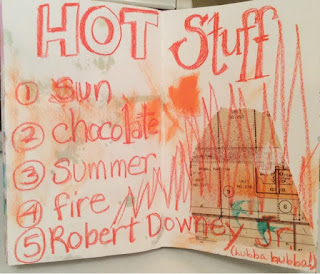 HOT Stuff
① Sun
② chocolate
③ Summer
④ fire
⑤ Robert Downey Jr
(hubba bubba!)